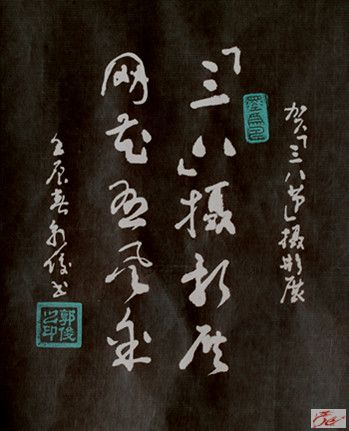 贺「三八节」摄影展
「三八」摄影展
网花风采
春郭俊书
郭俊之印